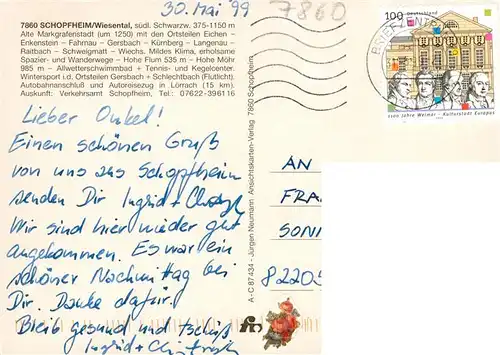 30. Mai '99
7860
7860 SCHOPFHEIM/Wiesental, südl. Schwarzw. 375-1150 m
Alte Markgrafenstadt (um 1250) mit den Ortsteilen Eichen -
Enkenstein - Fahrnau - Gersbach - Kürnberg - Langenau -
Raitbach - Schweigmatt - Wiechs. Mildes Klima, erholsame
Spazier- und Wanderwege - Hohe Flum 535 m - Hohe Möhr
985 m - Allwetterschwimmbad + Tennis- und Kegelcenter.
Wintersport i.d. Ortsteilen Gersbach + Schlechtbach (Flutlicht).
Autobahnanschluß und Autoreisezug in Lörrach (15 km).
Auskunft: Verkehrsamt Schopfheim, Tel.: 07622-396116
Lieber Onkel!
Einen schönen Gruß
von uns aus Schopfheim
senden Dir Ingrid +
Wir sind hier wieder gut
angekommen. Es war ein
schöner Nachmittag bei
Dir. Danke dafür.
Bleib gesund und tschüß
Ingrid +
A-C 87 434 - Jürgen Neumann Ansichtskarten-Verlag 7860 Schopfheim
100 Deutschland
BRIEFZENTRUM
1100 Jahre Weimar - Kulturstadt Europas
AN
FRA
SONN
82205